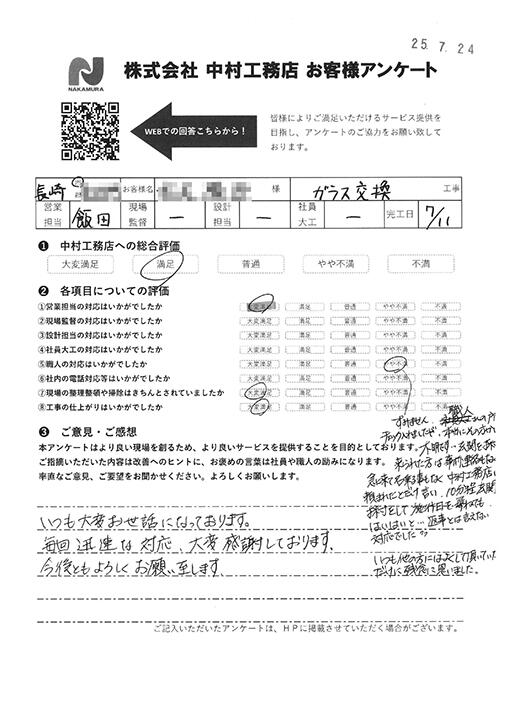 25.7.24
NAKAMURA
株式会社 中村工務店 お客様アンケート
WEBでの回答こちらから!
皆様によりご満足いただけるサービス提供を
目指し、アンケートのご協力をお願い致して
おります。
長崎 お客様名 様 ガラス交換 工事
営業担当 飯田 現場監督 ー 設計担当 ー 社員大工 ー 完工日 7/11
❶ 中村工務店への総合評価
大変満足 満足 普通 やや不満 不満
❷ 各項目についての評価
①営業担当の対応はいかがでしたか 大変満足 満足 普通 やや不満 不満
②現場監督の対応はいかがでしたか 大変満足 満足 普通 やや不満 不満
③設計担当の対応はいかがでしたか 大変満足 満足 普通 やや不満 不満
④社員大工の対応はいかがでしたか 大変満足 満足 普通 やや不満 不満
⑤職人の対応はいかがでしたか 大変満足 満足 普通 やや不満 不満
⑥社内の電話対応等はいかがでしたか 大変満足 満足 普通 やや不満 不満
⑦現場の整理整頓や掃除はきちんとされていましたか 大変満足 満足 普通 やや不満 不満
⑧工事の仕上がりはいかがでしたか 大変満足 満足 普通 やや不満 不満
❸ ご意見・ご感想
本アンケートはより良い現場を創るため、より良いサービスを提供することを目的としております。
ご指摘いただいた内容は改善へのヒントに、お褒めの言葉は社員や職人の励みになります。
率直なご意見、ご要望をお聞かせください。よろしくお願いします。
いつも大変お世話になっております。
毎回迅速な対応、大変感謝しております。
今後ともよろしくお願い至します。
すみません、職人さんの所
チェック入れましたが、
来られた方は事前連絡もなく
急に来て名乗る事もなく中村工務店に
頼まれたとだけ言い、10分程玄関
採寸して
はいはいと…返事とは言えない
対応でした
いつも他の方には良くして頂いていた
だけに残念に思いました。
ご記入いただいたアンケートは、HPに掲載させていただく場合がございます。